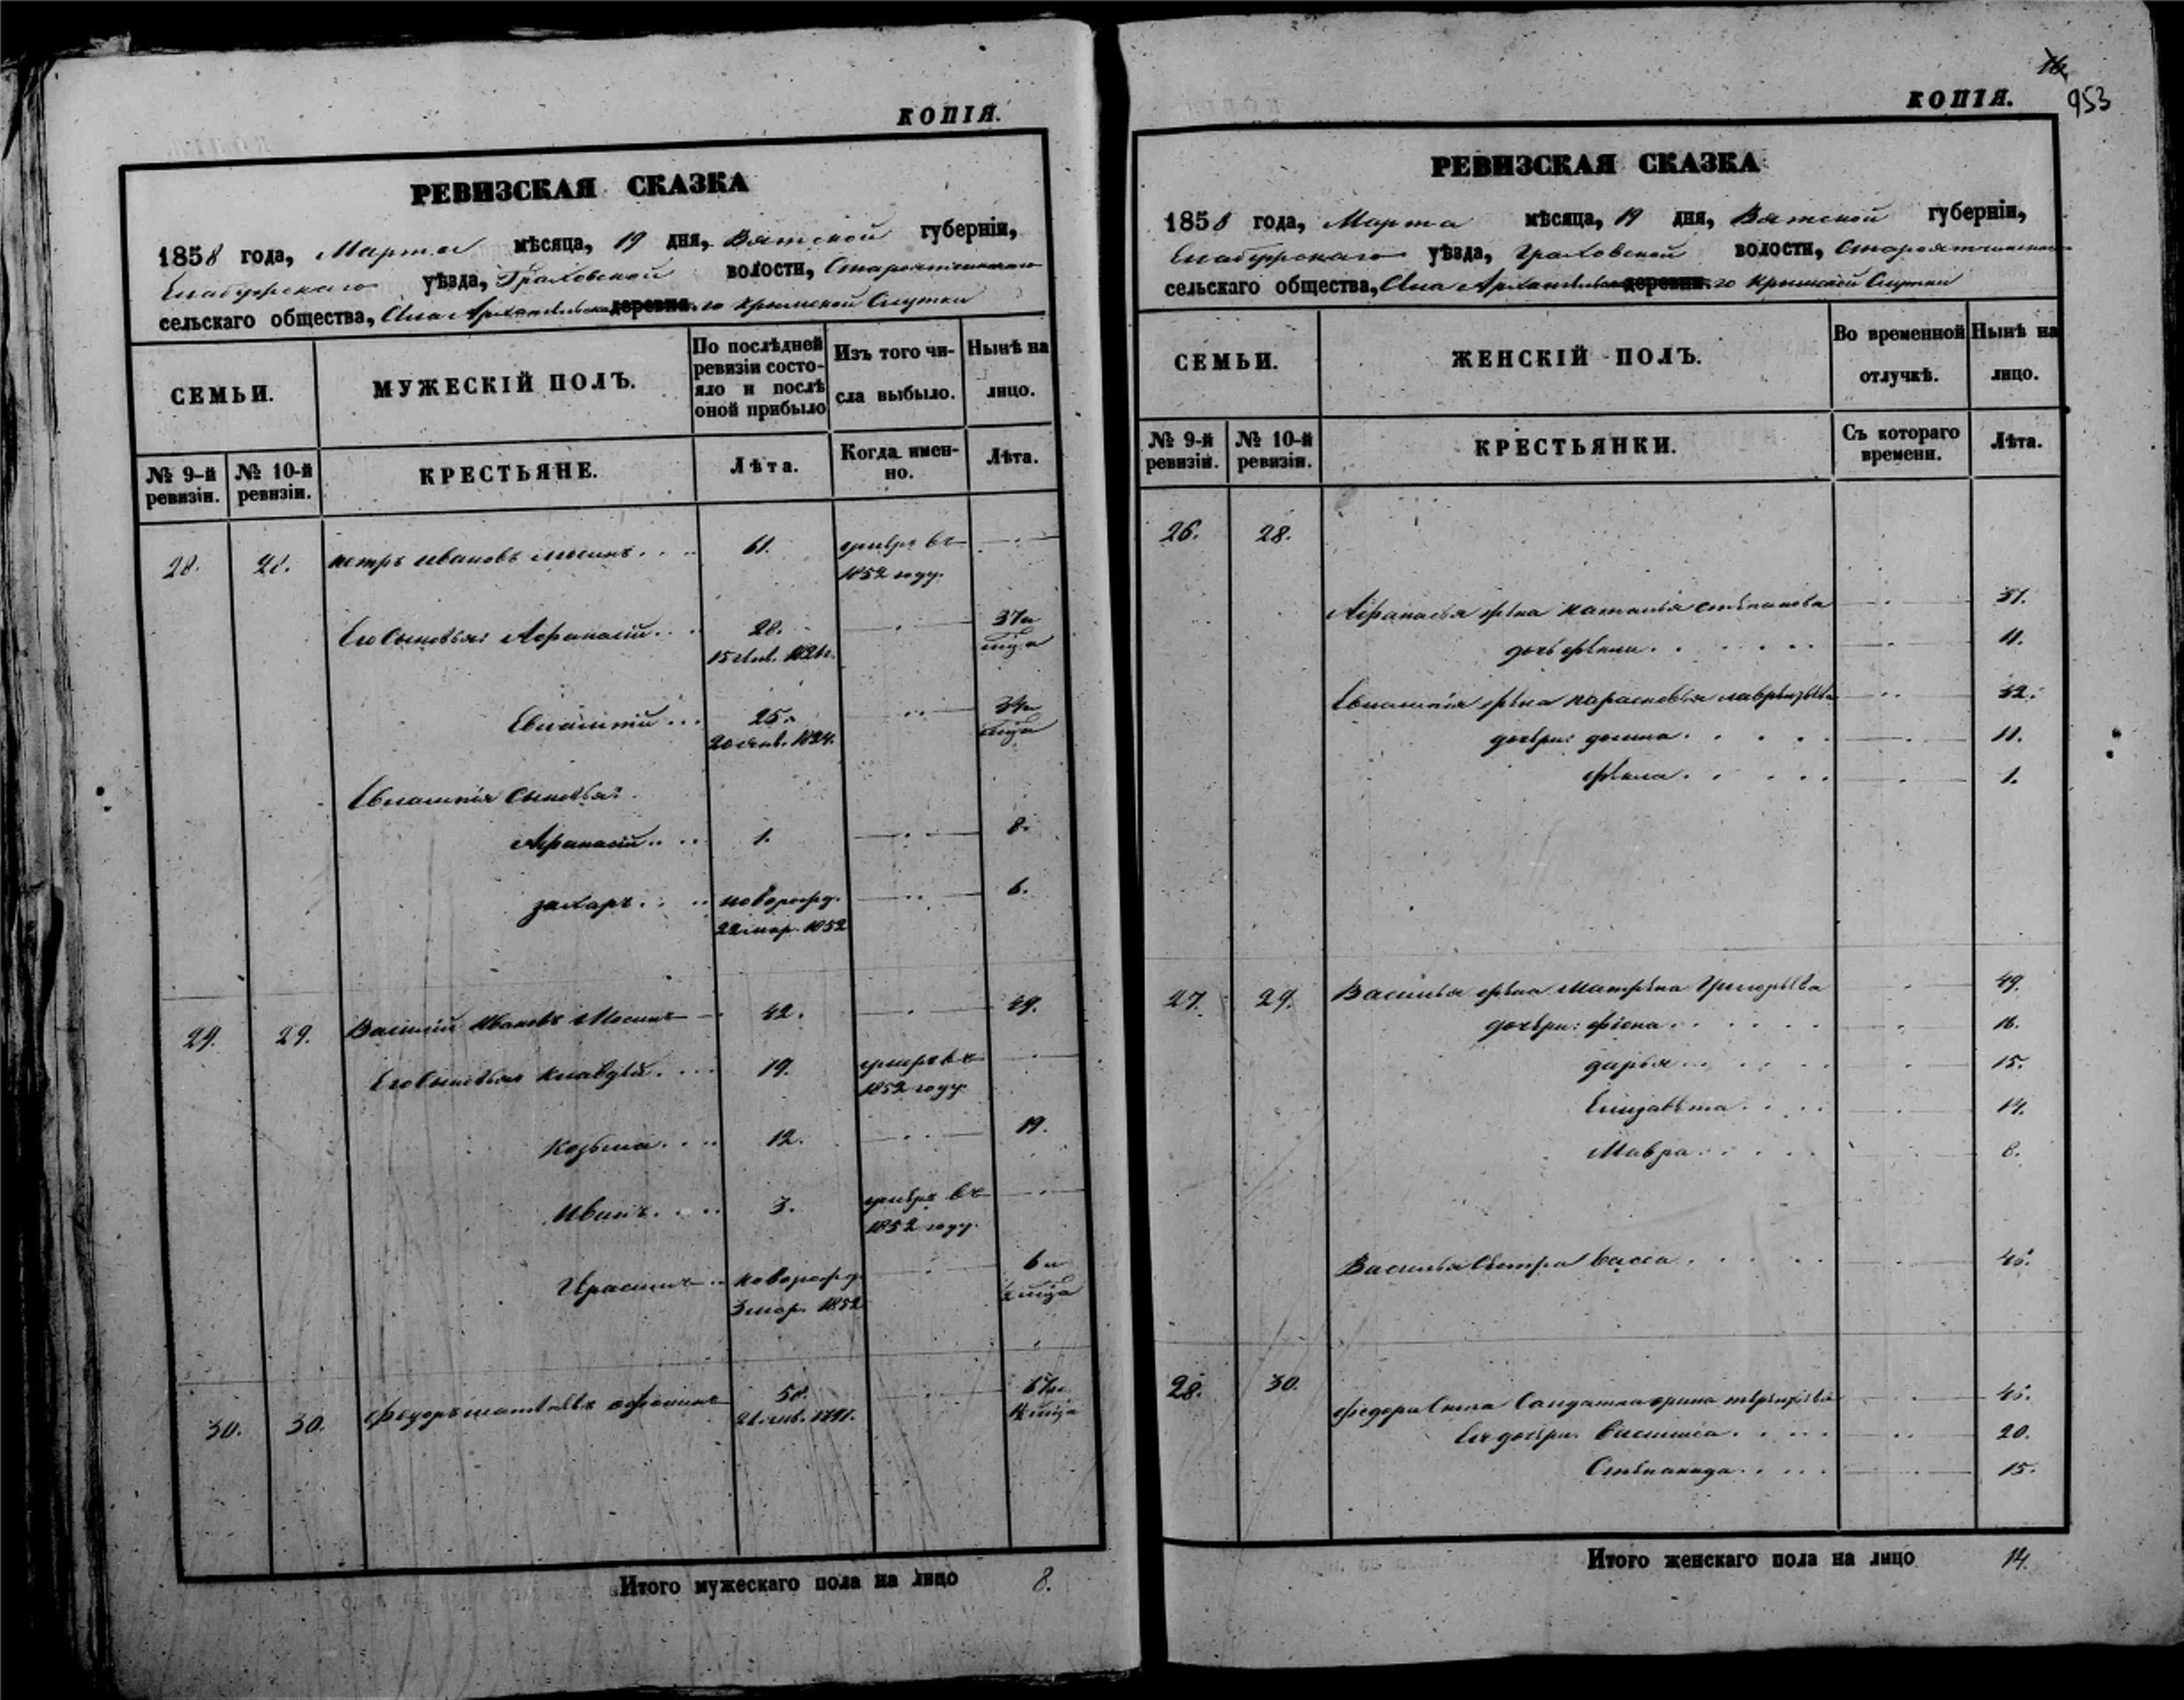 КОПІЯ.
РЕВИЗСКАЯ СКАЗКА
1858 года, Марта мѣсяца, 19 дня, Вятской губерніи,
Елабужскаго уѣзда, Граховской волости,
сельскаго общества, Села Архангельска деревни. го Крымской Слутки
СЕМЬИ.
МУЖЕСКІЙ ПОЛЪ.
По послѣдней ревизіи состояло и послѣ оной прибыло
Изъ того числа выбыло.
Нынѣ на лицо.
№ 9-й ревизіи.
№ 10-й ревизіи.
КРЕСТЬЯНЕ.
Лѣта.
Когда именно.
Лѣта.
28. 28. Петръ Ивановъ Мосинъ 61. умеръ въ
1852 году.
Его сыновья: Афанасій 28. 37 и
15 1826.
Евлампій 25. 34 и
20 янв. 1824.
Евлампія сыновья:
Афанасій 1. 8.
Захаръ новорожд. 6.
22 мар. 1852
29. 29. Василій Ивановъ Мосинъ 42. 49.
Его сыновья Клавдій 19. умеръ въ
1852 году.
Козьма 12. 19.
Иванъ 3. умеръ въ
1852 году.
новорожд. 6 и
3 мар. 1852 міца
30. 30. Федоръ Матвѣевъ 67 и
міца
Итого мужескаго пола на лицо 8.
16
КОПІЯ. 953
РЕВИЗСКАЯ СКАЗКА
1858 года, Марта мѣсяца, 19 дня, Вятской губерніи,
Елабужскаго уѣзда, Граховской волости,
сельскаго общества, Села Архангельска деревни. го Крымской Слутки
СЕМЬИ.
ЖЕНСКІЙ ПОЛЪ.
Во временной отлучкѣ.
Нынѣ на лицо.
№ 9-й ревизіи.
№ 10-й ревизіи.
КРЕСТЬЯНКИ.
Съ котораго времени.
Лѣта.
26. 28.
Афанасья жена Наталья Степанова 37.
дочь Фёкла 11.
Евлампія жена Парасковья Лаврентьева 32.
дочери: Домна 11.
Фекла 1.
27. 29. Василья жена Матрена Григорьева 49.
дочери: Фіона 16.
Дарья 15.
Елизавета 14.
Мавра 8.
Василья сестра Васса 45.
28. 30.
Федора сноха Солдатка Орина Терентьева 45.
Ея дочери: Василиса 20.
Степанида 15.
Итого женскаго пола на лицо 14.